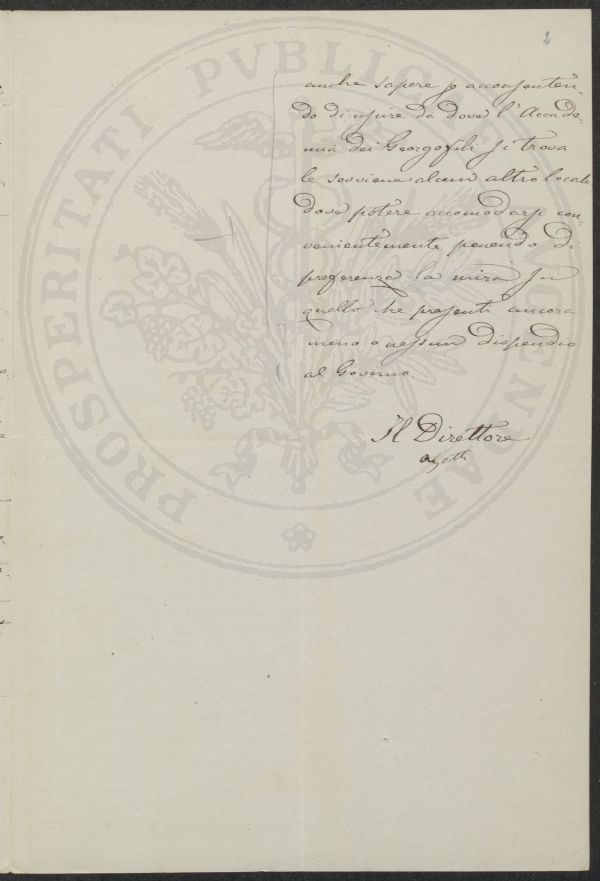 2
anche sapere se acconsenten-
do di uscire da dove l'Accade-
mia dei Georgofili si trova
le sovviene alcun altro locale
dove potere accomodarsi con-
venientemente ponendo di
preferenza la mira su
quello che presenti ancora
meno o nessun dispendio
al Governo.
Il Direttore
PROSPERITATI PVBLICAE AVGENDAE